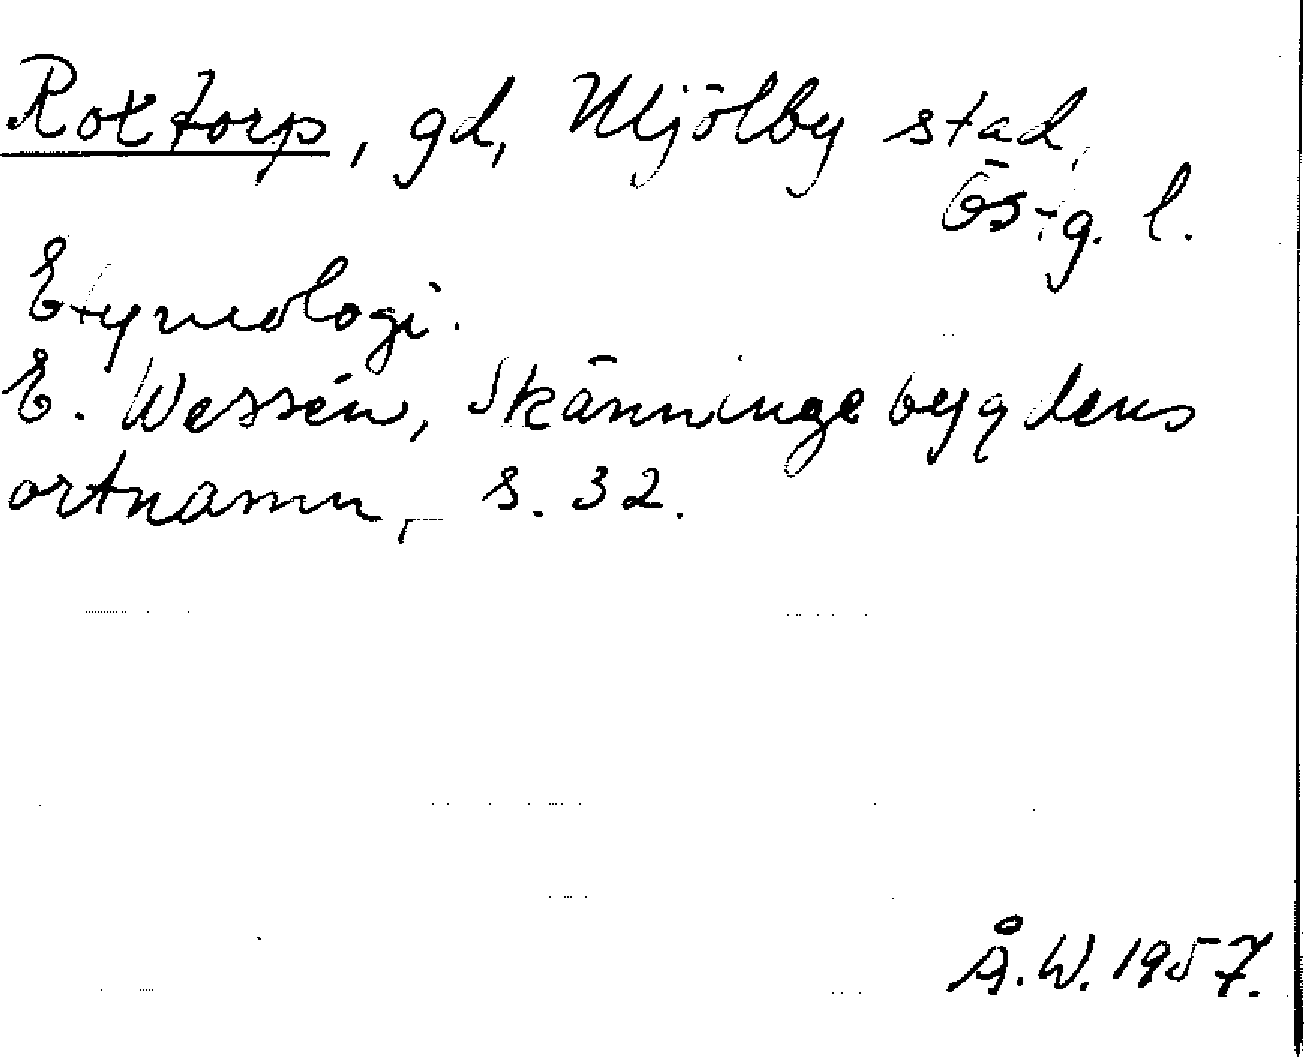 Roxtorp, gd, Mjölby stad,
Östg. l.
Etymologi.
E. Wessén, Skänningebygdens
ortnamn, s. 32.
Å.W. 1957.